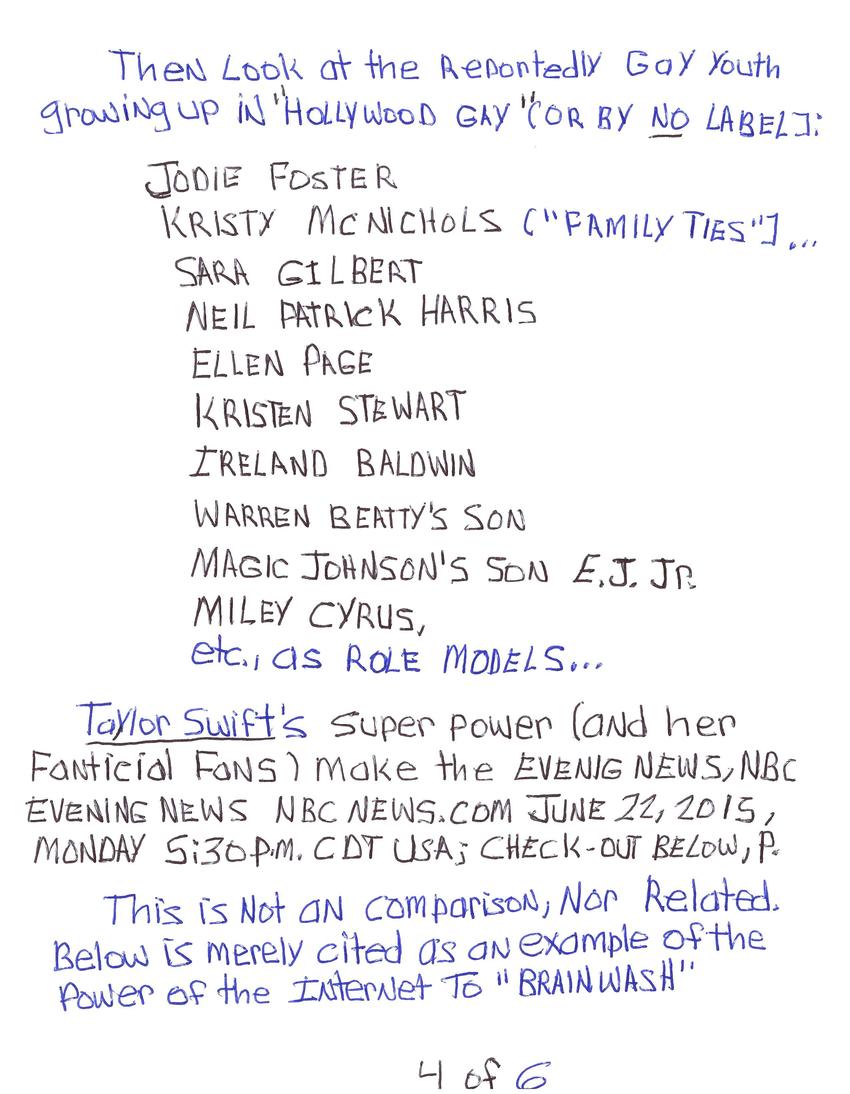 Then Look at the Reportedly Gay Youth
growing up in "HOLLYWOOD GAY" (OR BY NO LABEL]:
JODIE FOSTER
KRISTY McNICHOLS ("FAMILY TIES"]...
SARA GILBERT
NEIL PATRICK HARRIS
ELLEN PAGE
KRISTEN STEWART
IRELAND BALDWIN
WARREN BEATTY'S SON
MAGIC JOHNSON'S SON E.J. JR.
MILEY CYRUS,
etc., as ROLE MODELS...
Taylor Swift's super power (and her
Fanticial Fans) make the EVENIG NEWS, NBC
EVENING NEWS NBC NEWS.COM JUNE 22, 2015,
MONDAY 5:30 P.M. CDT USA; CHECK-OUT BELOW, P.
This is Not an comparison, Nor Related.
Below is merely cited as an example of the
Power of the Internet To "BRAINWASH"
4 of 6